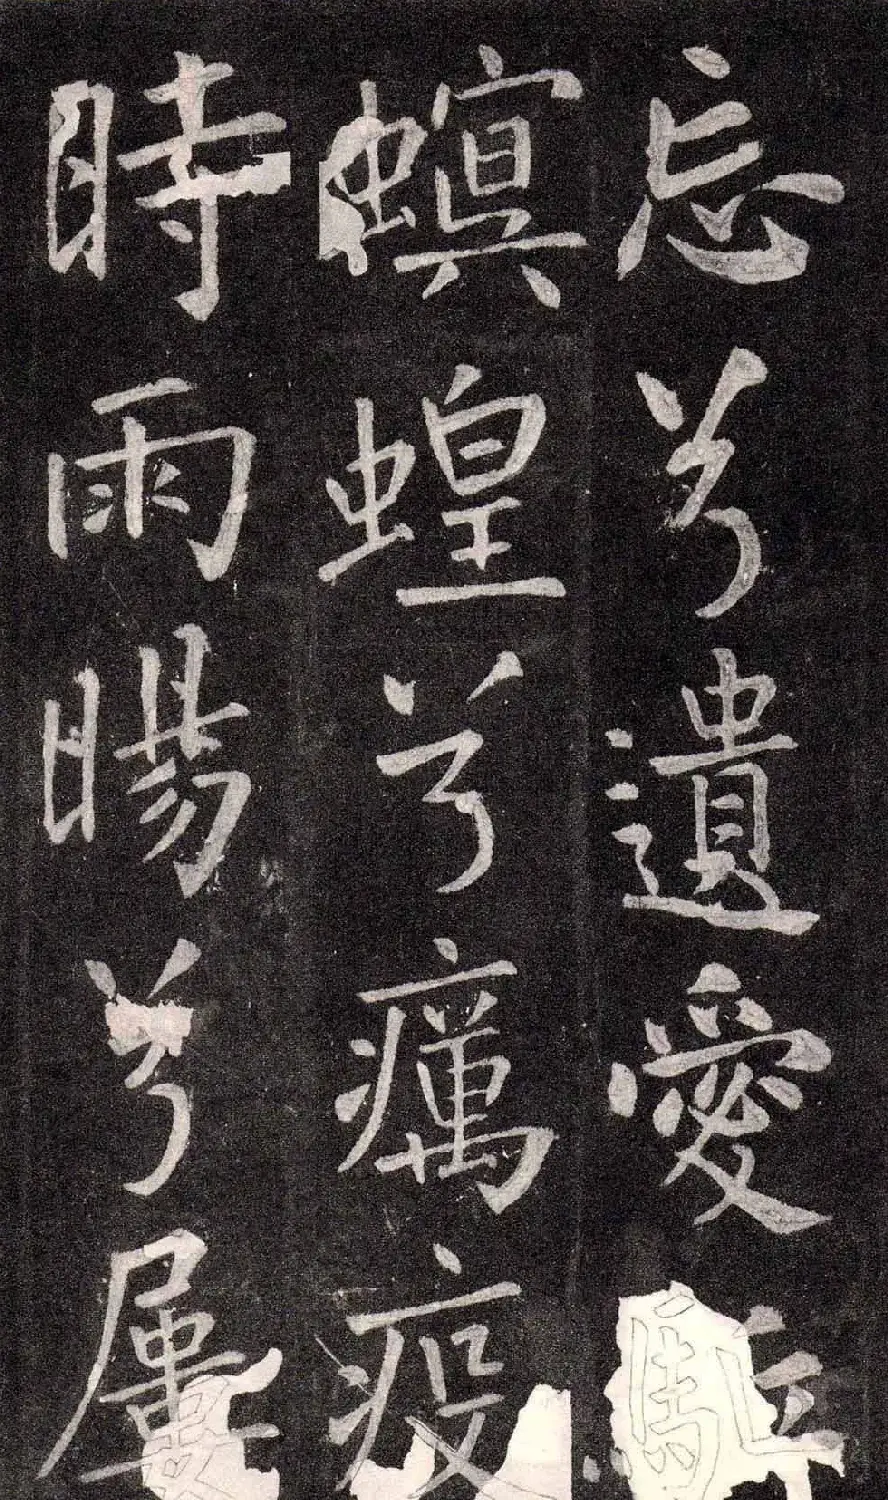 忘兮遺愛駈
螟蝗兮癘疫
時雨暘兮屢